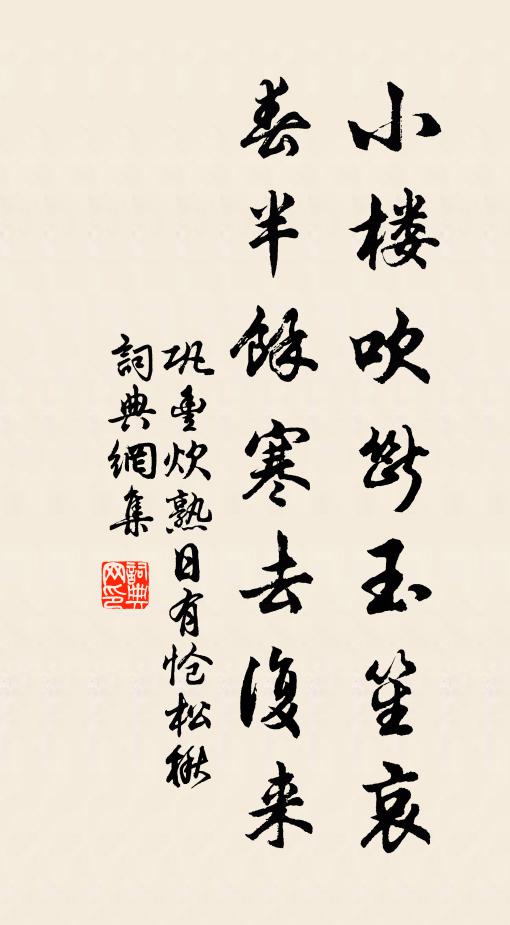 小楼吹断玉笙哀
春半餘寒去復来
巩豊炊熟日有怆松楸
詞典網集
詞典网印